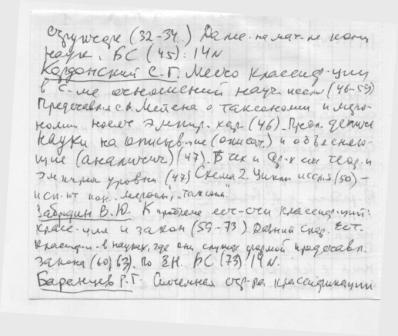 структуре (32-34.) Даже на мат-ке
наук. БС (45): 14N
Кордонский С.Г. Место классиф-ции
в с-ме отношений науч. иссл. (46-59)
Представл-я Мейена о таксономии и меро-
номии носят эмпир. хар. (46). деление
науки на описыв-ие (описат.) и объясняю-
щие (аналитич.) (47). теор. и
эмпирич уровни (47) Схема 2. Цикл иссл-я (50) -
исп-ит пон. "мерон", "таксон".
Забродин В.Ю. К проблеме ест-сти классиф-ций:
класс-ция и закон (59-73)
классиф-и в науках, где они служат формой представл.
закона (60, 63). По БС (73) 19N.
Баранцев Р.Г. Системная стр-ра классификации